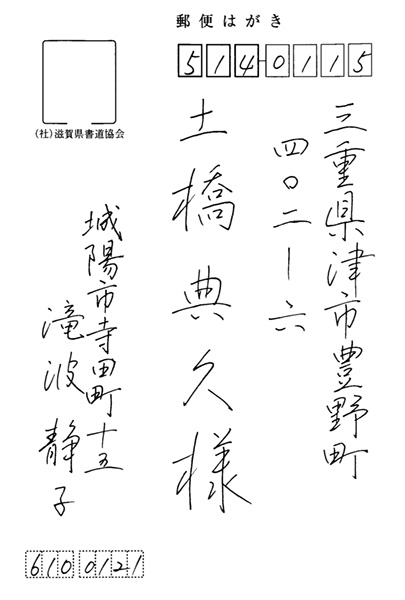 郵便はがき
514-0115
三重県津市豊野町
四〇二ー六
土橋典久様
(社)滋賀県書道協会
城陽市寺田町十五
滝波静子
6100121